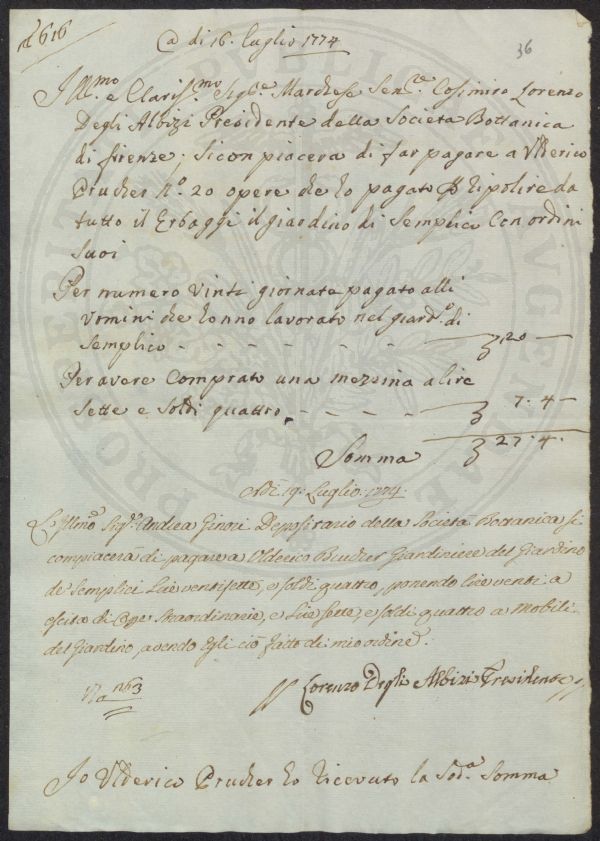 n.° 616
36
@ di 16. Luglio 1774
Ill.mo e Claris.mo Sig.re Marchese Sen.re Cosimiro Lorenzo
Degli Albizi Presidente della Societa Bottanica
di firenze; Si conpiacera di far pagare a Ulderico
Prucher N.° 20 opere che ho pagato p ripolire da
tutto il Erbaggi il giardino di Semplici Con ordini
Suoi
Per numero Vinti giornate pagato alli
Vomini che honno lavorato nel giard.o di
Semplici - - - - - - - 20 —
Per avere Comprato una mezzina a lire
Sette e Soldi quattro. - - - - 7. 4 —
Somma 27. 4.
Adì 19: Luglio: 1774.
L'Illmo Sig.r Andrea Ginori Depositario della Società Bottanica si
compiacerà di pagare a Ulderico Prucher Giardiniere del Giardino
de' Semplici Lire ventisette, e soldi quattro, ponendo lire venti a
escita di Spese Straordinarie, e Lire sette, e soldi quattro a Mobili
del Giardino, avendo Egli ciò fatto di mio ordine.
n.° 63
Lorenzo Degli Albizi Presidente
Io Ulderico Prucher ho Ricevuto la Sod.a Somma